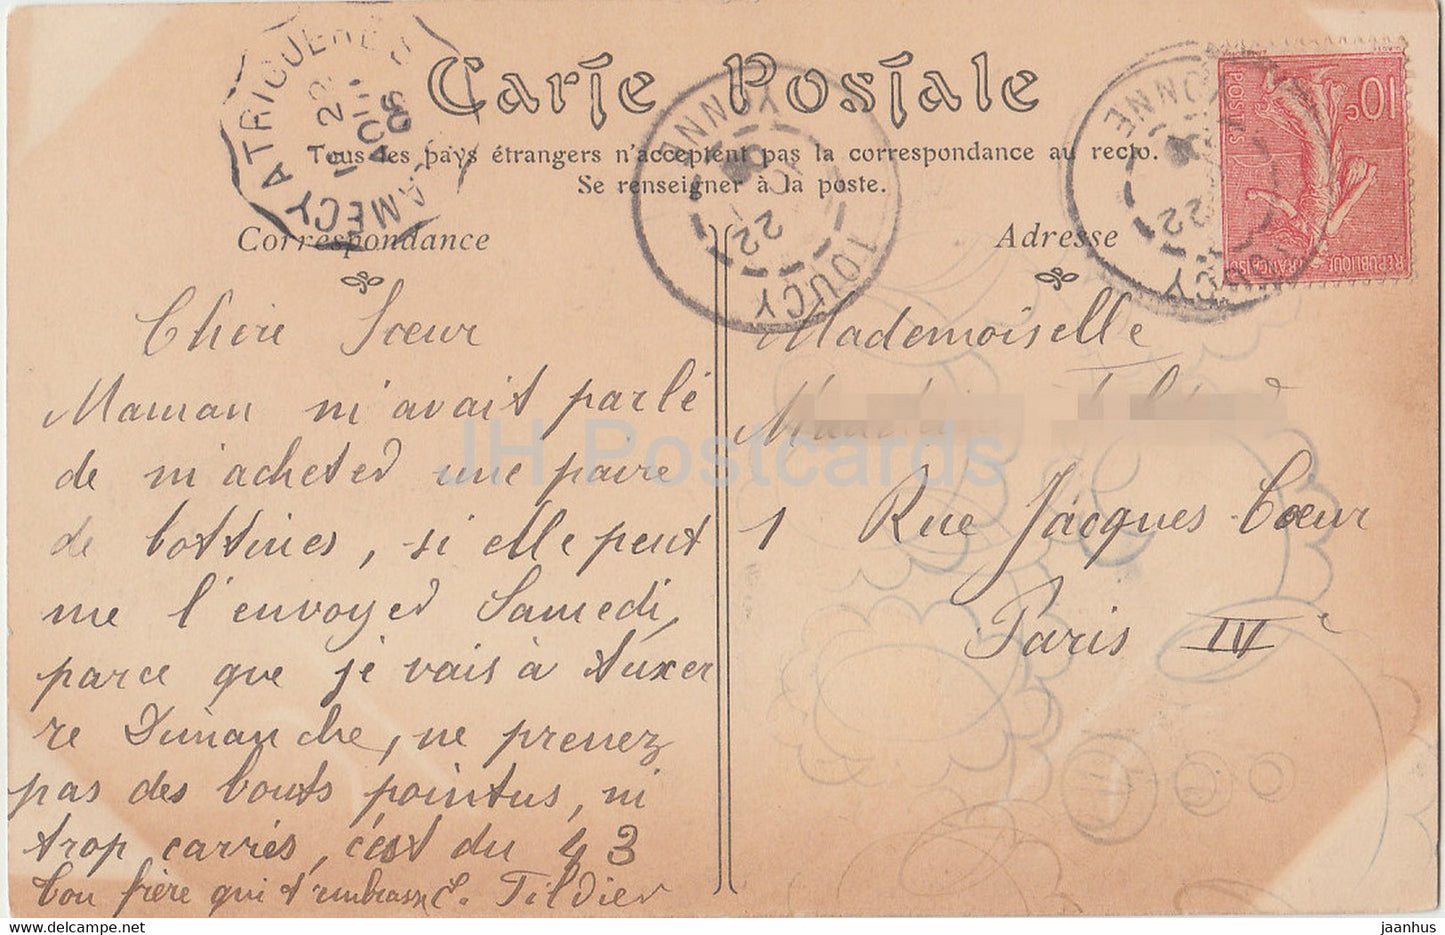 Carte Postale
Tous les pays étrangers n'acceptent pas la correspondance au recto.
Se renseigner à la poste.
Correspondance
Chère Sœur
Maman m'avait parlé
de m'acheter une paire
de bottines, si elle peut
me l'envoyer Samedi,
parce que je vais à
re Dimanche, ne prenez
pas des bouts pointus, ni
trop carrés, c'est du 43
ton frère qui t'embrasse C. Tildier
Adresse
Mademoiselle
1 Rue Jacques Cœur
Paris IVe
TOUCY
YONNE
22
TOUCY
YONNE
22
10c
POSTES
REPUBLIQUE FRANCAISE
JH Postcards
jaanhus